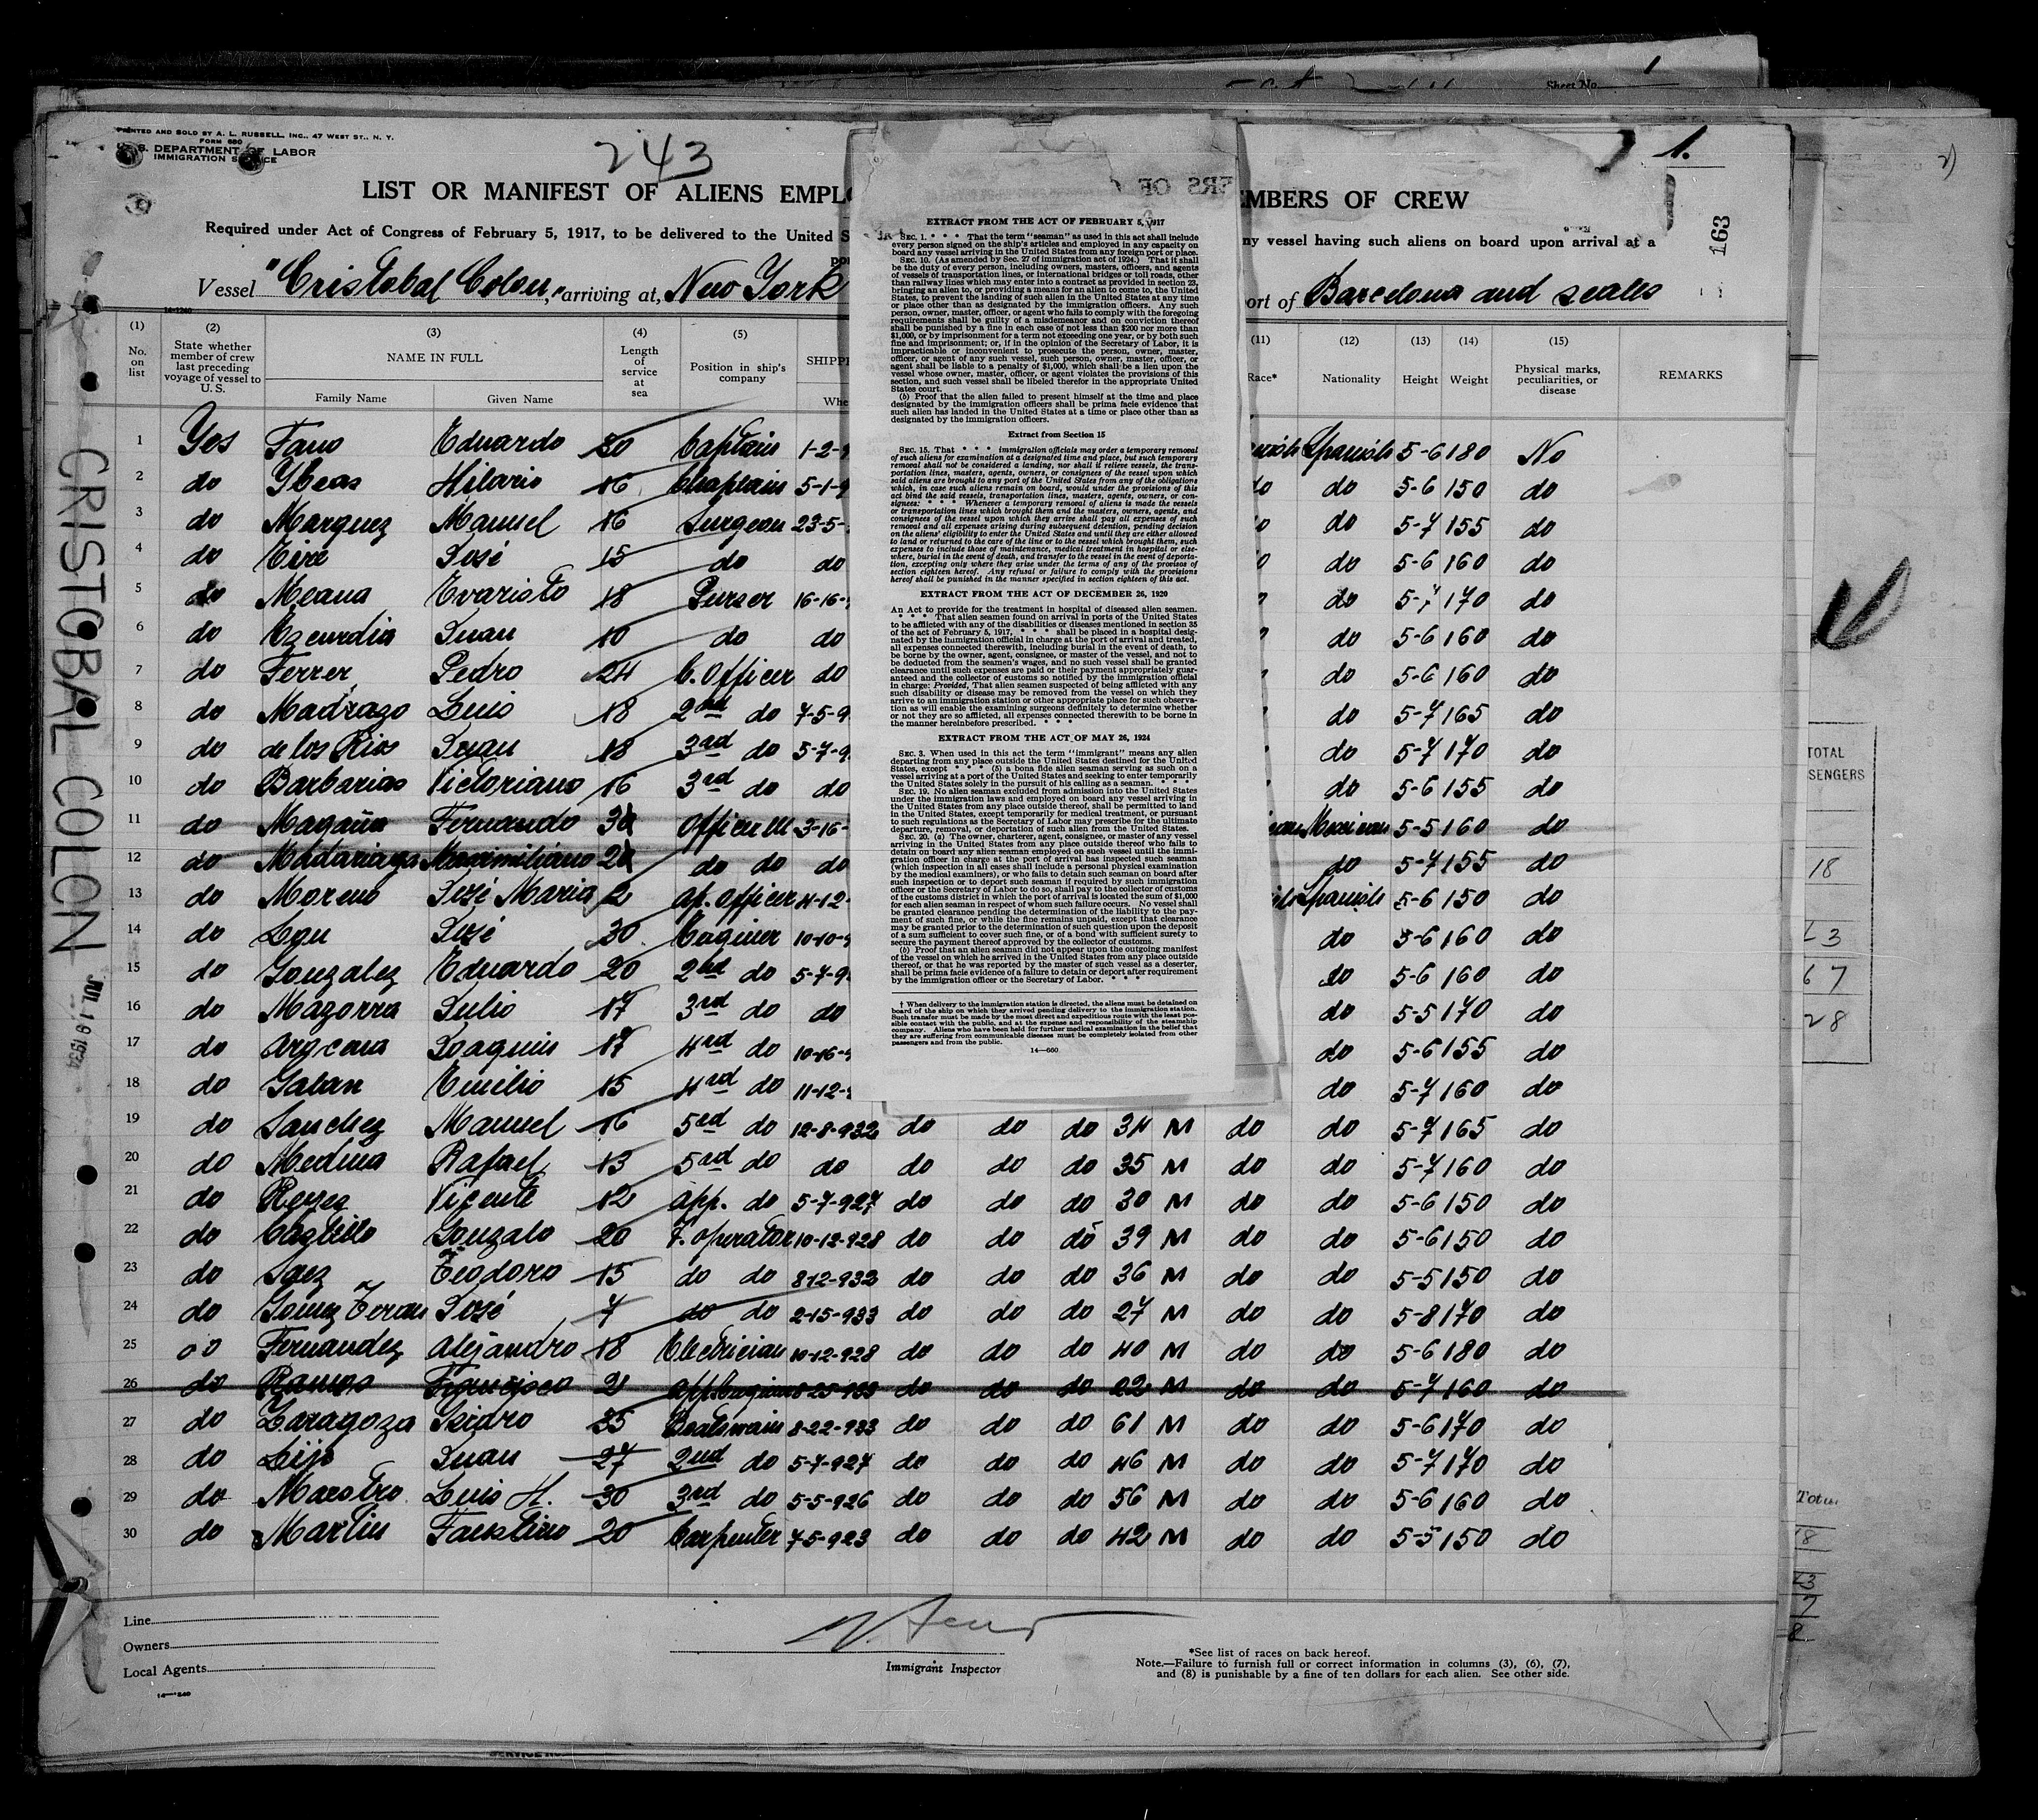 Sheet No. 1
PRINTED AND SOLD BY A. L. RUSSELL, INC., 47 WEST ST., N. Y.
FORM 680
U. S. DEPARTMENT OF LABOR
IMMIGRATION SERVICE
243
1.
163
LIST OR MANIFEST OF ALIENS EMPLO
EMBERS OF CREW
Required under Act of Congress of February 5, 1917, to be delivered to the United S
ny vessel having such aliens on board upon arrival at a
Vessel "Cristobal Colon," arriving at, New York
ort of Barcelona and scales
CRISTOBAL COLON JUL 19 1934
(1) No. on list
(2) State whether member of crew last preceding voyage of vessel to U. S.
(3) NAME IN FULL
Family Name Given Name
(4) Length of service at sea
(5) Position in ship's company
SHIPPE
Whe
(11) Race*
(12) Nationality
(13) Height
(14) Weight
(15) Physical marks, peculiarities, or disease
REMARKS
1 Yes Fano Eduardo 30 Captain 1-2-9 Spanish 5-6 180 No
2 do Ybeas Hilario 16 Chaplain 5-1-9 do do 5-6 150 do
3 do Marquez Manuel 16 Surgeon 23-5- do 5-7 155 do
4 do José 15 do do do 5-6 160 do
5 do Meana Evaristo 18 Purser 16-16- do 5-7 170 do
6 do Ezcurdia Juan 10 do do do 5-6 160 do
7 do Ferrer Pedro 24 C. Officer do do 5-6 160 do
8 do Madrazo Luis 18 2nd do 7-5-9 do 5-7 165 do
9 do de los Rios Juan 18 3rd do 5-7-9 do 5-7 170 do
10 do Barbarias Victoriano 16 3rd do do do 5-6 155 do
11 do Magaña Fernando Officer 3-16- Mexican 5-5 160 do
12 do Madariaga Maximiliano do do do do 5-7 155 do
13 do Moreno José Maria 2 ap. officer 4-12- Spanish 5-6 150 do
14 do José 30 Enginer 10-10-9 do 5-6 160 do
15 do Gonzalez Eduardo 20 2nd do 5-7-9 do 5-6 160 do
16 do Mazorra Julio 17 3rd do do do 5-5 170 do
17 do Argcona Joaquin 17 4rd do 10-16-9 do 5-6 155 do
18 do Galan Emilio 15 4rd do 11-12- do 5-7 160 do
19 do Sanchez Manuel 16 5rd do 12-8-932 do do do 34 M do do 5-7 165 do
20 do Medina Rafael 13 5rd do do do do do 35 M do do 5-7 160 do
21 do Reyez Vicente 12 App. do 5-7-927 do do do 30 M do do 5-6 150 do
22 do Castillo Gonzalo 20 T. operator 10-12-928 do do do 39 M do do 5-6 150 do
23 do Saez Teodoro 15 do do 8-12-932 do do do 36 M do do 5-5 150 do
24 do Gomez Teran José 7 do do 2-15-933 do do do 27 M do do 5-8 170 do
25 do Fernandez Alejandro 18 Electrician 10-12-928 do do do 40 M do do 5-6 180 do
26 do Ramos Francisco 2 8-25-933 do do do 22 M do do 5-7 160 do
27 do Zaragoza Isidro 35 Boatswain 8-22-933 do do do 61 M do do 5-6 170 do
28 do Lijo Juan 27 2nd do 5-7-927 do do do 46 M do do 5-7 170 do
29 do Maestro Luis H. 30 3rd do 5-5-926 do do do 56 M do do 5-6 160 do
30 do Martin Faustino 20 Carpenter 7-5-923 do do do 42 M do do 5-5 150 do
EXTRACT FROM THE ACT OF FEBRUARY 5, 1917
SEC. 1. * * * That the term "seaman" as used in this act shall include
every person signed on the ship's articles and employed in any capacity on
board any vessel arriving in the United States from any foreign port or place.
SEC. 10. (As amended by Sec. 27 of immigration act of 1924.) That it shall
be the duty of every person, including owners, masters, officers, and agents
of vessels of transportation lines, or international bridges or toll roads, other
than railway lines which may enter into a contract as provided in section 23,
bringing an alien to, or providing a means for an alien to come to, the United
States, to prevent the landing of such alien in the United States at any time
or place other than as designated by the immigration officers. Any such
person, owner, master, officer, or agent who fails to comply with the foregoing
requirements shall be guilty of a misdemeanor and on conviction thereof
shall be punished by a fine in each case of not less than $200 nor more than
$1,000, or by imprisonment for a term not exceeding one year, or by both such
fine and imprisonment; or, if in the opinion of the Secretary of Labor, it is
impracticable or inconvenient to prosecute the person, owner, master,
officer, or agent of any such vessel, such person, owner, master, officer, or
agent shall be liable to a penalty of $1,000, which shall be a lien upon the
vessel whose owner, master, officer, or agent violates the provisions of this
section, and such vessel shall be libeled therefor in the appropriate United
States court.
(b) Proof that the alien failed to present himself at the time and place
designated by the immigration officers shall be prima facie evidence that
such alien has landed in the United States at a time or place other than as
designated by the immigration officers.
Extract from Section 15
SEC. 15. That * * * immigration officials may order a temporary removal
of such aliens for examination at a designated time and place, but such temporary
removal shall not be considered a landing, nor shall it relieve vessels, the trans-
portation lines, masters, agents, owners, or consignees of the vessel upon which
said aliens are brought to any port of the United States from any of the obligations
which, in case such aliens remain on board, would under the provisions of this
act bind the said vessels, transportation lines, masters, agents, owners, or con-
signees: * * * Whenever a temporary removal of aliens is made the vessels
or transportation lines which brought them and the masters, owners, agents, and
consignees of the vessel upon which they arrive shall pay all expenses of such
removal and all expenses arising during subsequent detention, pending decision
on the aliens' eligibility to enter the United States and until they are either allowed
to land or returned to the care of the line or to the vessel which brought them, such
expenses to include those of maintenance, medical treatment in hospital or else-
where, burial in the event of death, and transfer to the vessel in the event of deporta-
tion, excepting only where they arise under the terms of any of the provisos of
section eighteen hereof. Any refusal or failure to comply with the provisions
hereof shall be punished in the manner specified in section eighteen of this act.
EXTRACT FROM THE ACT OF DECEMBER 26, 1920
An Act to provide for the treatment in hospital of diseased alien seamen.
* * * * That alien seamen found on arrival in ports of the United States
to be afflicted with any of the disabilities or diseases mentioned in section 35
of the act of February 5, 1917, * * * shall be placed in a hospital desig-
nated by the immigration official in charge at the port of arrival and treated,
all expenses connected therewith, including burial in the event of death, to
be borne by the owner, agent, consignee, or master of the vessel, and not to
be deducted from the seamen's wages, and no such vessel shall be granted
clearance until such expenses are paid or their payment appropriately guar-
anteed and the collector of customs so notified by the immigration official
in charge: Provided, That alien seamen suspected of being afflicted with any
such disability or disease may be removed from the vessel on which they
arrive to an immigration station or other appropriate place for such observa-
tion as will enable the examining surgeons definitely to determine whether
or not they are so afflicted, all expenses connected therewith to be borne in
the manner hereinbefore prescribed. * * *
EXTRACT FROM THE ACT OF MAY 26, 1924
SEC. 3. When used in this act the term "immigrant" means any alien
departing from any place outside the United States destined for the United
States, except * * * (5) a bona fide alien seaman serving as such on a
vessel arriving at a port of the United States and seeking to enter temporarily
the United States solely in the pursuit of his calling as a seaman. * * *
SEC. 19. No alien seaman excluded from admission into the United States
under the immigration laws and employed on board any vessel arriving in
the United States from any place outside thereof, shall be permitted to land
in the United States, except temporarily for medical treatment, or pursuant
to such regulations as the Secretary of Labor may prescribe for the ultimate
departure, removal, or deportation of such alien from the United States.
SEC. 20. (a) The owner, charterer, agent, consignee, or master of any vessel
arriving in the United States from any place outside thereof who fails to
detain on board any alien seaman employed on such vessel until the immi-
gration officer in charge at the port of arrival has inspected such seaman
(which inspection in all cases shall include a personal physical examination
by the medical examiners), or who fails to detain such seaman on board after
such inspection or to deport such seaman if required by such immigration
officer or the Secretary of Labor to do so, shall pay to the collector of customs
of the customs district in which the port of arrival is located the sum of $1,000
for each alien seaman in respect of whom such failure occurs. No vessel shall
be granted clearance pending the determination of the liability to the pay-
ment of such fine, or while the fine remains unpaid, except that clearance
may be granted prior to the determination of such question upon the deposit
of a sum sufficient to cover such fine, or of a bond with sufficient surety to
secure the payment thereof approved by the collector of customs.
(b) Proof that an alien seaman did not appear upon the outgoing manifest
of the vessel on which he arrived in the United States from any place outside
thereof, or that he was reported by the master of such vessel as a deserter,
shall be prima facie evidence of a failure to detain or deport after requirement
by the immigration officer or the Secretary of Labor. * * *
† When delivery to the immigration station is directed, the aliens must be detained on
board of the ship on which they arrived pending delivery to the immigration station.
Such transfer must be made by the most direct and expeditious route with the least pos-
sible contact with the public, and at the expense and responsibility of the steamship
company. Aliens who have been held for further medical examination in the belief that
they are suffering from communicable diseases must be completely isolated from other
passengers and from the public.
14—660
TOTAL
SENGERS
18
23
67
28
Total
18
23
7
8
Line
Owners
Local Agents
Immigrant Inspector
*See list of races on back hereof.
Note.—Failure to furnish full or correct information in columns (3), (6), (7),
and (8) is punishable by a fine of ten dollars for each alien. See other side.
14—1240